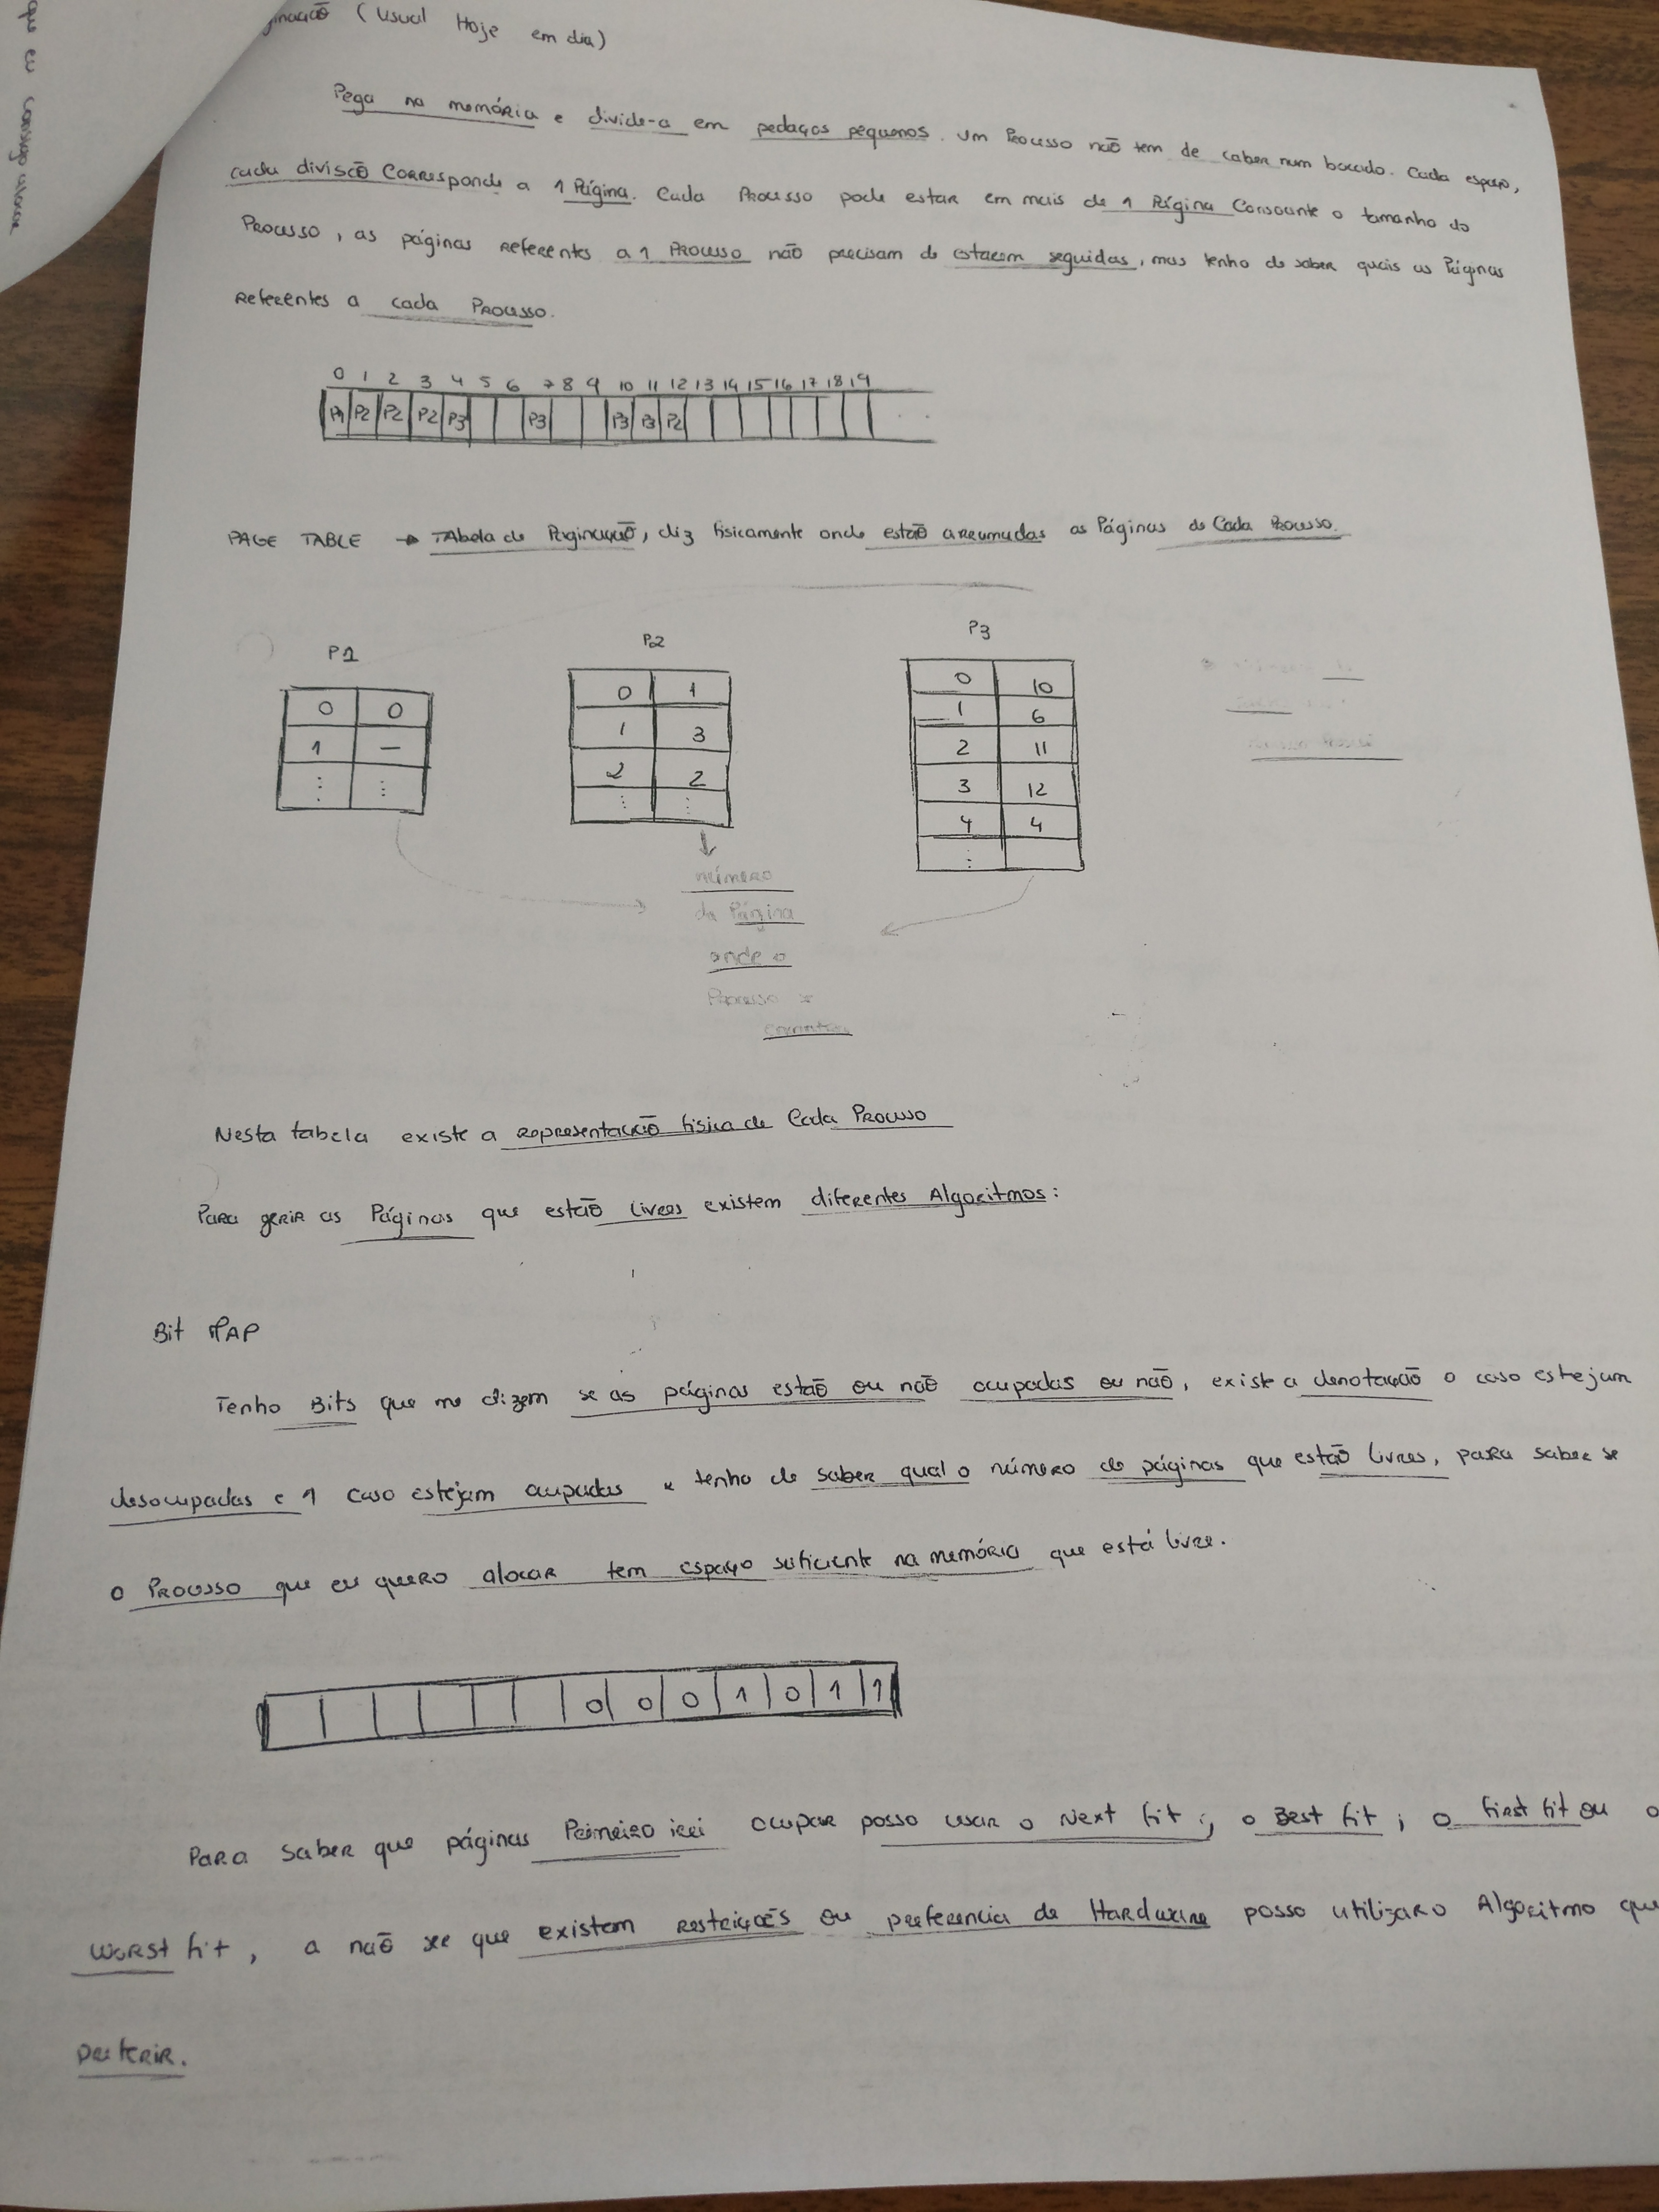 que eu consigo alocar
(Usual Hoje em dia)
Pega na memória e divide-a em pedaços pequenos. Um Processo não tem de caber num bocado. Cada espaço,
cada divisão corresponde a 1 Página. Cada Processo pode estar em mais de 1 Página Consoante o tamanho do
Processo, as páginas referentes a 1 Processo não precisam de estarem seguidas, mas tenho de saber quais as Páginas
Referentes a cada Processo.
0 1 2 3 4 5 6 7 8 9 10 11 12 13 14 15 16 17 18 19
P1 P2 P2 P2 P3 P3 P3 P3 P2
PAGE TABLE → TAbela de Paginação, diz fisicamente onde estão arrumadas as Páginas de Cada Processo.
P1 P2 P3
0 0
1 —
⋮ ⋮
0 1
1 3
2 2
⋮ ⋮
0 10
1 6
2 11
3 12
4 4
⋮
↓
número
da Página
onde o
Processo se
encontra
Nesta tabela existe a representação física de Cada Processo
Para gerir as Páginas que estão livres existem diferentes Algoritmos:
Bit MAP
Tenho Bits que me dizem se as páginas estão ou não ocupadas ou não, existe a denotação 0 caso estejam
desocupadas e 1 caso estejam ocupadas e tenho de saber qual o número de páginas que estão livres, para saber se
o Processo que eu quero alocar tem espaço suficiente na memória que está livre.
0 0 0 1 0 1 1
Para saber que páginas Primeiro irei ocupar posso usar o Next fit ; o Best fit ; o first fit ou o
worst fit, a não ser que existem restrições ou preferencia de Hardware posso utilizar o Algoritmo que
preferir.